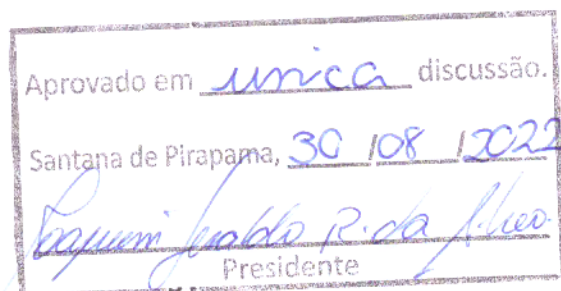 Aprovado em unica discussão.
Santana de Pirapama, 30 /08 /2022
Joaquim Geraldo R. da
Presidente